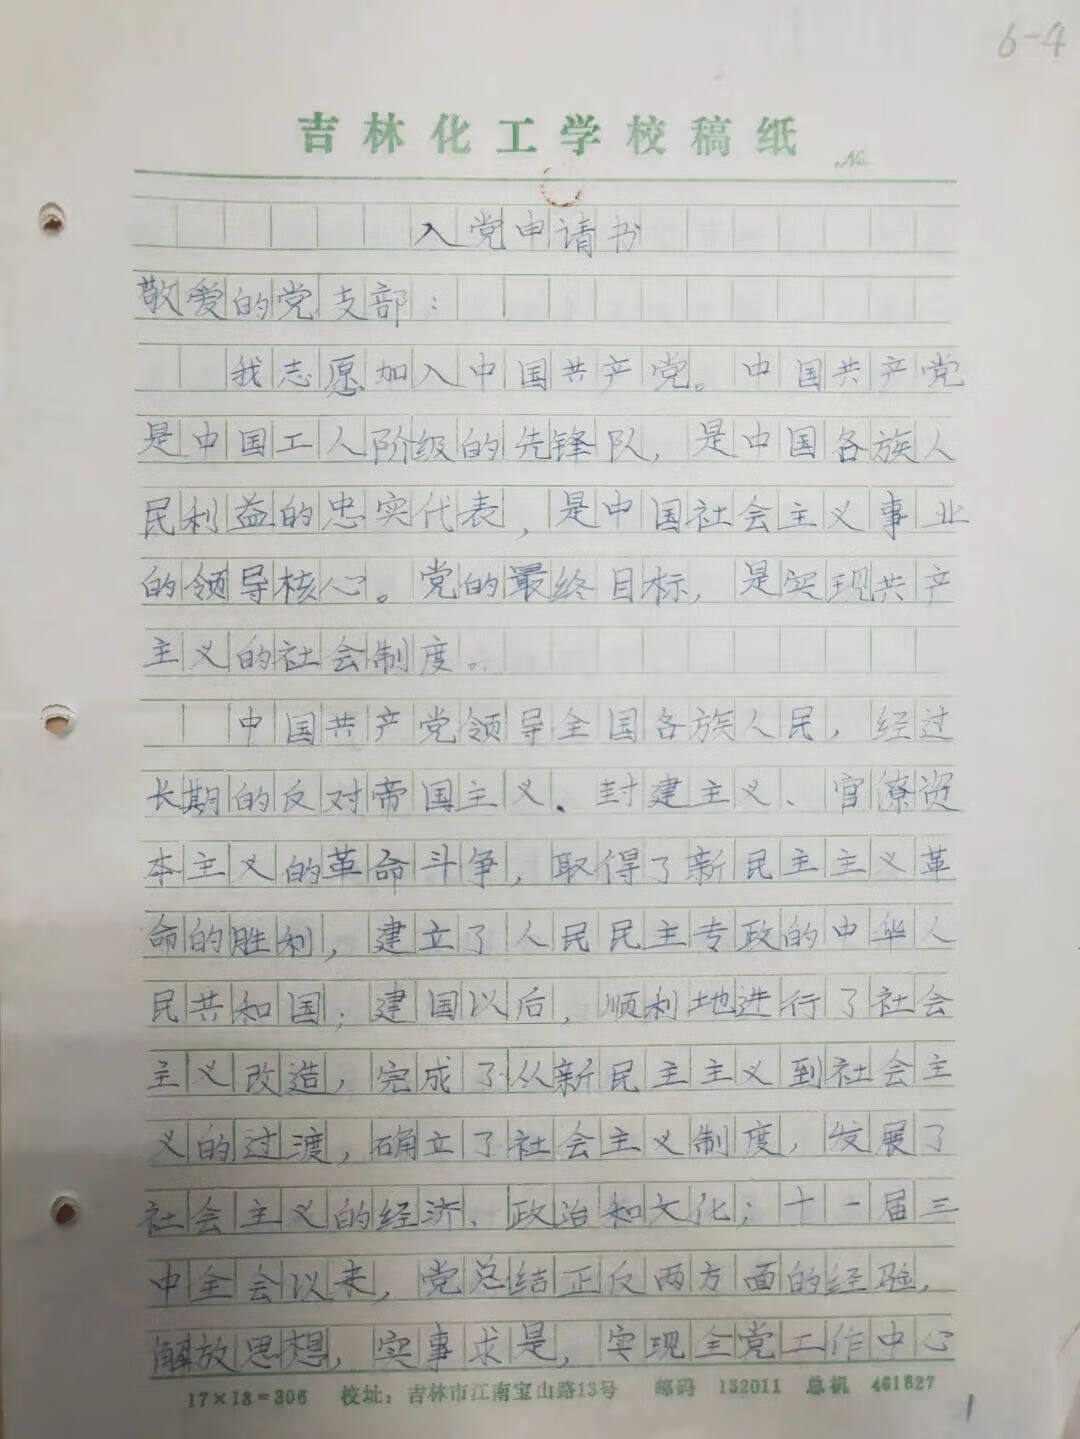 6-4
吉林化工学校稿纸
No
入党申请书
敬爱的党支部:
我志愿加入中国共产党。中国共产党
是中国工人阶级的先锋队,是中国各族人
民利益的忠实代表,是中国社会主义事业
的领导核心。党的最终目标,是实现共产
主义的社会制度。
中国共产党领导全国各族人民,经过
长期的反对帝国主义、封建主义、官僚资
本主义的革命斗争,取得了新民主主义革
命的胜利,建立了人民民主专政的中华人
民共和国;建国以后,顺利地进行了社会
主义改造,完成了从新民主主义到社会主
义的过渡,确立了社会主义制度,发展了
社会主义的经济、政治和文化;十一届三
中全会以来,党总结正反两方面的经验,
解放思想,实事求是,实现全党工作中心
17×18=306 校址:吉林市江南宝山路13号 邮码 132011 总机 461827
1